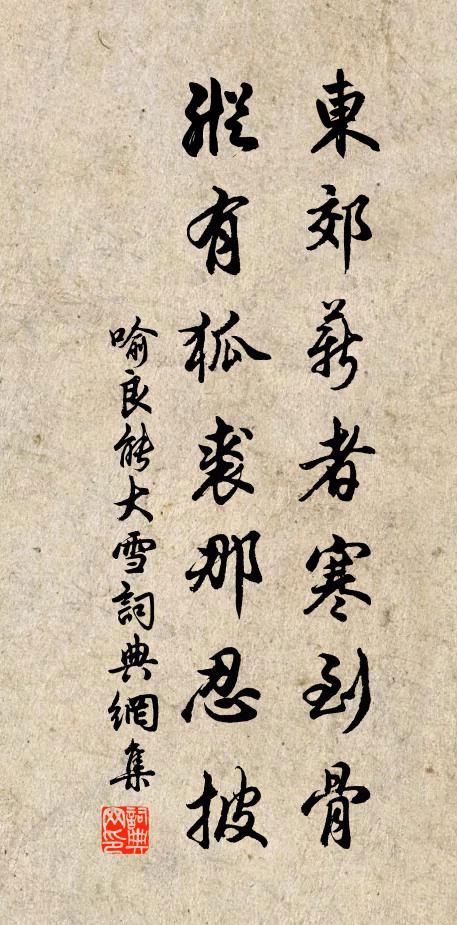 東郊薪者寒到骨
縱有狐裘那忍披
喻良能大雪詞典網集
詞典网印